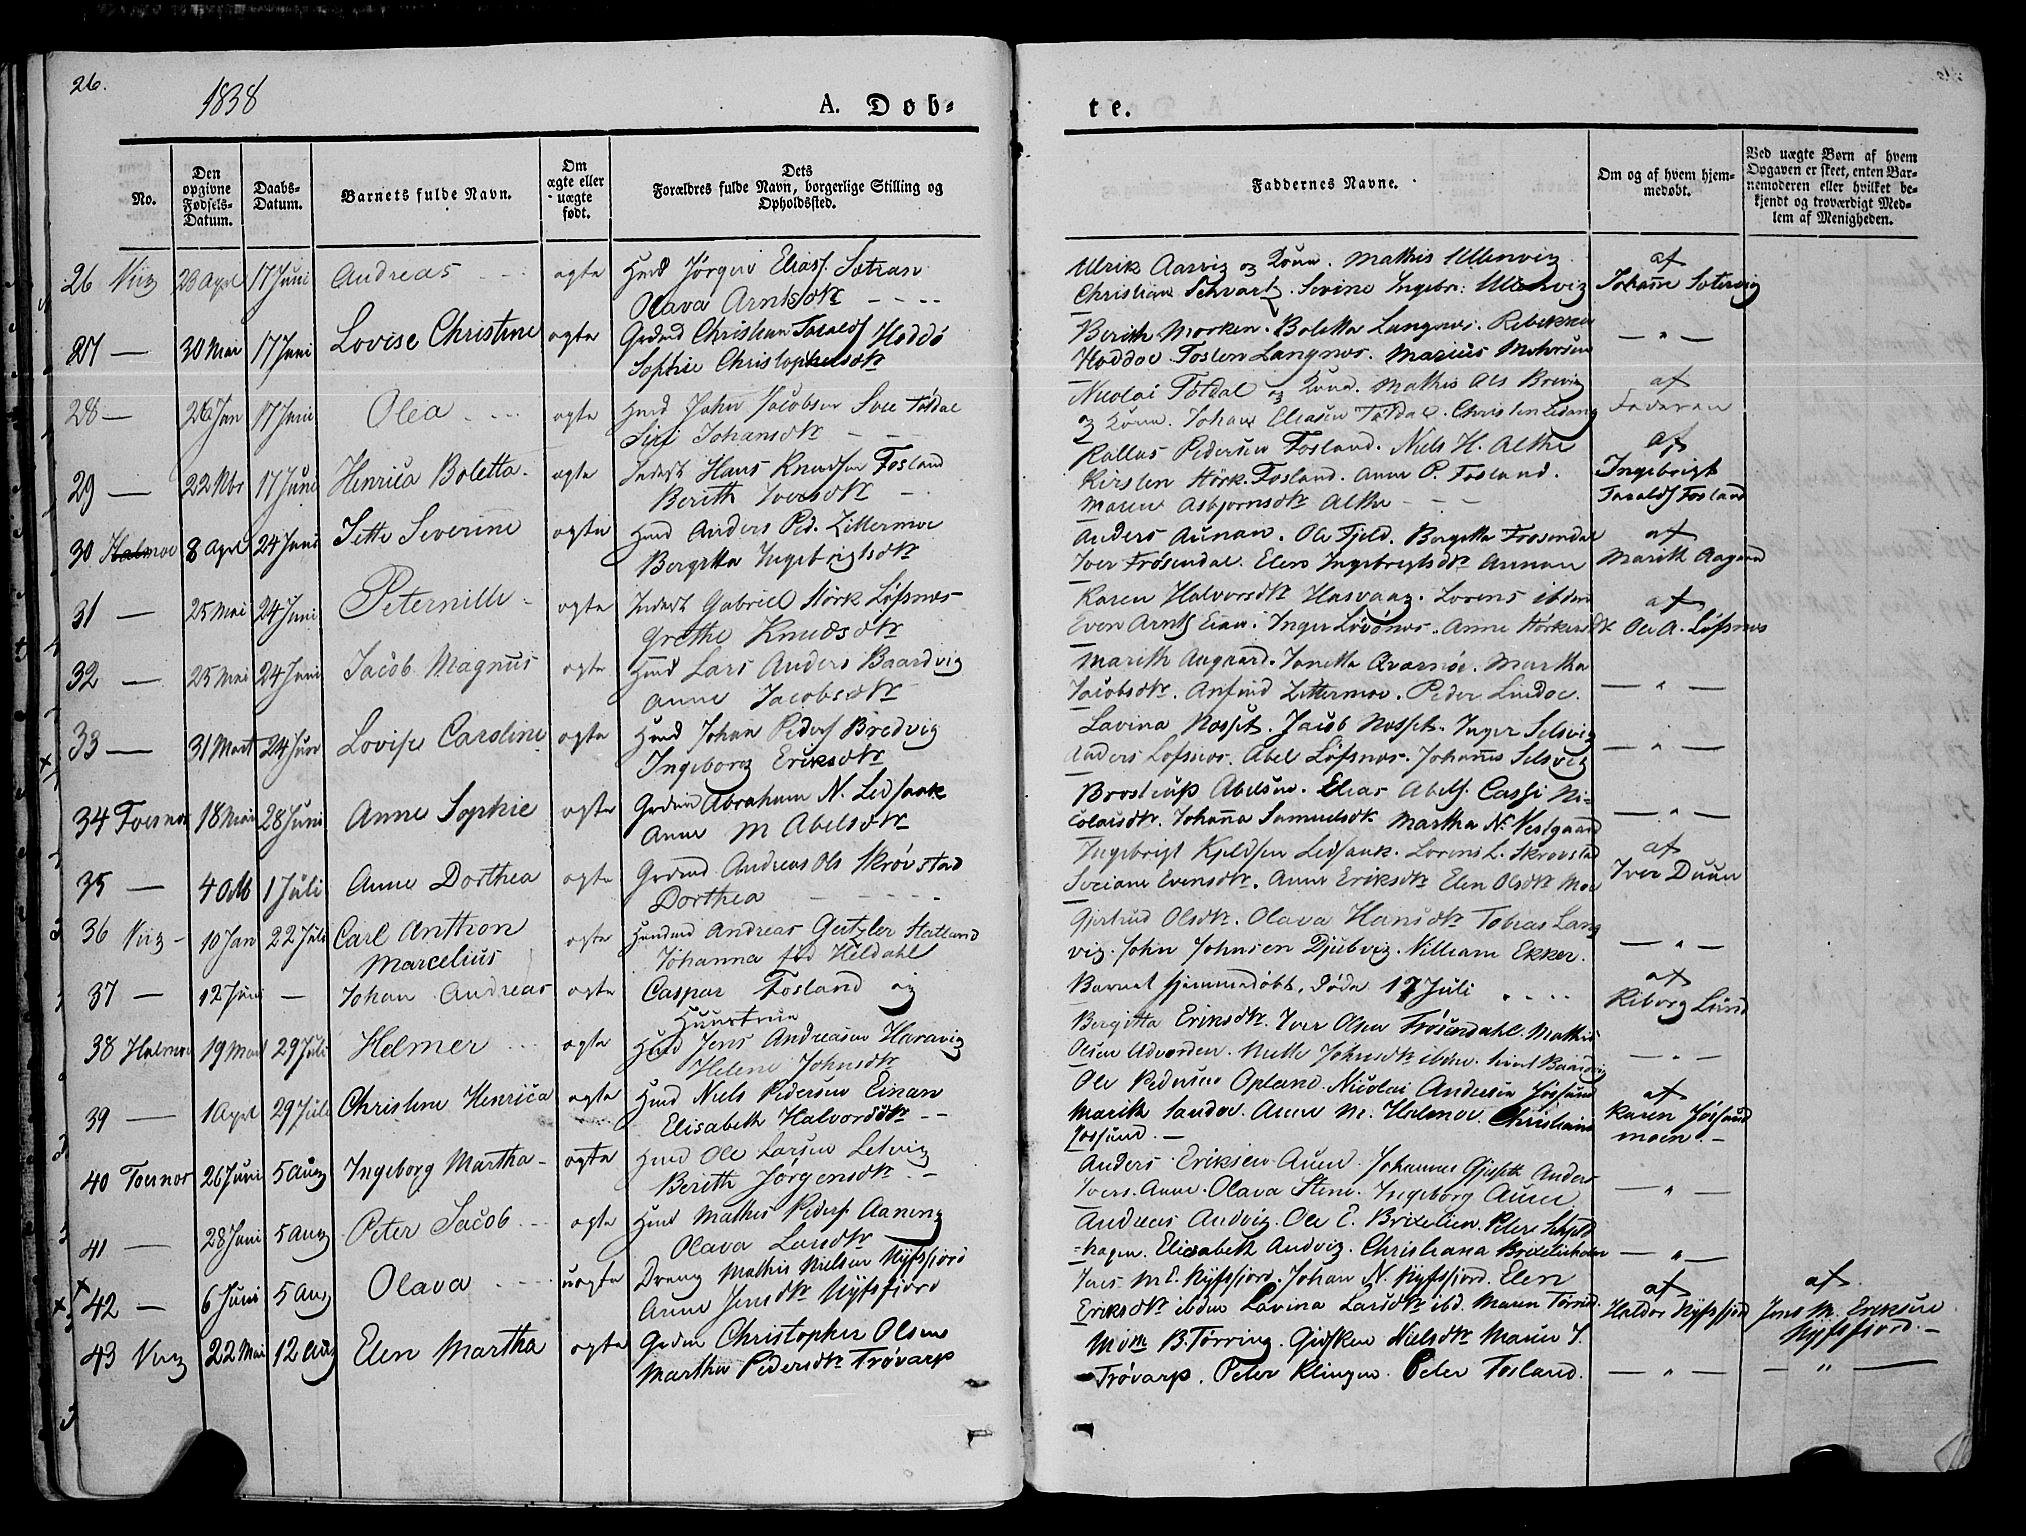 26.
1838
A. Døb-
te.
No.
Den opgivne Fødsels-Datum.
Daabs-Datum.
Barnets fulde Navn.
Om ægte eller uægte født.
Dets Forældres fulde Navn, borgerlige Stilling og Opholdssted.
Faddernes Navne.
Om og af hvem hjemmedøbt.
Ved uægte Børn af hvem Opgaven er skeet, enten Barnemoderen eller hvilket bekjendt og troværdigt Medlem af Menigheden.
26 Viig 23 Apr 17 Juni Andreas ægte Huusd Jørgen Eliass. Sætran
Olava Arntsdtr
Ulrik Aarvig og Kone. Mathis Ullenvig
Christian Schvartz. Sevine Ingebr. Ullenvig
af
Johanne Sætervig
27 — 30 Mai 17 Juni Lovise Christine ægte Grdmd Christian Taralds Hoddø
Sophie Christophersdtr
Berith Morken. Boletta Langnes. Rebekka
Hoddoe. Tosten Langnes. Marius
— " —
28 — 26 Jan 17 Juni Olea ægte Huusd John Jacobsen Tøtdal
Siri Johansdtr
Nicolai Tøtdal og Kone. Mathis Ols Brevig
og Kone. Johan Eliasen Tøtdal. Christen
af
Faderen
29 — 22 Nbr 17 Juni Henrica Boletta ægte Inderst Hans Knudsen Fosland
Berith Iversdtr
Rallus Pedersen Fosland. Niels H. Althe
Kirsten Størk. Fosland. Anne P. Fosland.
Maren Asbjørnsdtr Althe
af
Ingebrigt
Taralds Fosland
30 Halmoe 8 Aprl 24 Juni Jette Severine ægte Huusd Anders Ped. Zittermoe
Bergitta Ingebrigtsdtr
Anders Aunan. Ole Fjeld. Bergitta Frøsendal
Iver Frøsendal. Elen Ingebrigtsdtr Aunan
af
Marith Aagaard
31 — 25 Mai 24 Juni Peternille ægte Inderst Gabriel Størk. Løfsnes
Grethe Knudsdtr
Karen Halvorsdtr Hasvaag. Lorens ibden
Even Arnts Einan. Inger Løvønes. Anne Størkersdtr
af
Ole A. Løfsnes
32 — 25 Mai 24 Juni Jacob Magnus ægte Huusd Lars Anders Baardvig
Anne Jacobsdtr
Marith Augaard. Janetta Qvarnøe. Martha
Jacobsdtr. Anfind Zittermoe. Peder Lindoe.
— " —
33 — 31 Mart 24 Juni Lovise Caroline ægte Huusd Johan Peders Bredvig
Ingeborg Eriksdtr
Lavina Nosset. Jacob Nosset. Inger Selsvig
Anders Løfsnes. Abel Løfsnes. Johannes Selsvig
— " —
34 Foesnes 18 Mai 28 Juni Anne Sophie ægte Grdmd Abraham N. Ledsaak
Anne M Abelsdtr
Brostrup Abelsen. Elias Abels. Cassi Ni-
colaisdtr. Johanna Samuelsdtr Martha N. Vestgaard
— " —
35 — 4 Octb 1 Juli Anne Dorthea ægte Grdmd Andreas Ols Skrøvstad
Dorthea
Ingebrigt Kjeldsen Ledsaak. Lorens L. Skrovstad
Seriane Evensdtr. Anne Eriksdtr Elen Olsdtr Moe
af
Iver Duun
36 Viig 10 Jan 22 Juli Carl Anthon
Marcelius ægte Andreas Geitzler Hatland
Johanna fød Heldahl
Gjertrud Olsdtr. Olava Hansdtr Tobias Lang
vig. John Johnsen Djubvig. William Ekker.
— " —
37 — 12 Juni — Johan Andreas ægte Caspar Fosland og
Huustrue
Barnet hjemmedøbt. Døde 17 Juli
af
Riborg Lund
38 Halmoe 19 Mart 29 Juli Helmer ægte Huusd Jens Andreasen Haravig
Helene Johnsdtr
Bergitta Eriksdtr. Iver Olsen Frøsendahl. Mathis
Olsen Udvorden. Mette Johnsdtr ibden. Sivert Baardvig
— " —
39 — 1 Aprl 29 Juli Christine Henrica ægte Huusd Niels Pedersen Einan
Elisabeth Halvorsdtr
Ole Pedersen Opland. Nicolai Andersen Jøssund
Marith Sandoe. Anne M. Halmoe. Christiana
Jossund. —
af
Karen Jøssund
moen. —
40 Foesnes 26 Juni 5 Aug Ingeborg Martha ægte Huusd Ole Larsen Letvig
Berith Jørgensdtr
Anders Eriksen Auen. Johannes Gjeseth Anders
Ivers. Anne Olava Stene. Ingeborg Auen
— " —
41 — 28 Juni 5 Aug Peter Jacob ægte Huusd Mathis Peders Aaneng
Olava Larsdtr
Andreas Andvig. Ole E. Brixelien. Peter
=hagen. Elisabeth Andvig. Christiana Brixelieholm
— " —
42 — 6 Juni 5 Aug Olava uægte Dreng Mathis Nielsen Nyfsfjord
Anne Jensdtr Nyfsfjord
Jens M. E. Nyfsfjord. Johan N. Nyfsfjord. Elen
Eriksdtr ibden Lavina Larsdtr ibd. Maren
af
Haldor Nyfsfjord
af
Jens M. Eriksen
Nyfsfjord. —
43 Viig 22 Mai 12 Aug Elen Martha ægte Grdm Christopher Olsen
Martha Pedersdtr Trøvarp
Mom B. Tørring. Gidsken Nielsdtr Maren J.
Trøvarp. Peter Klingen. Peter Fosland.
— " —
— " —